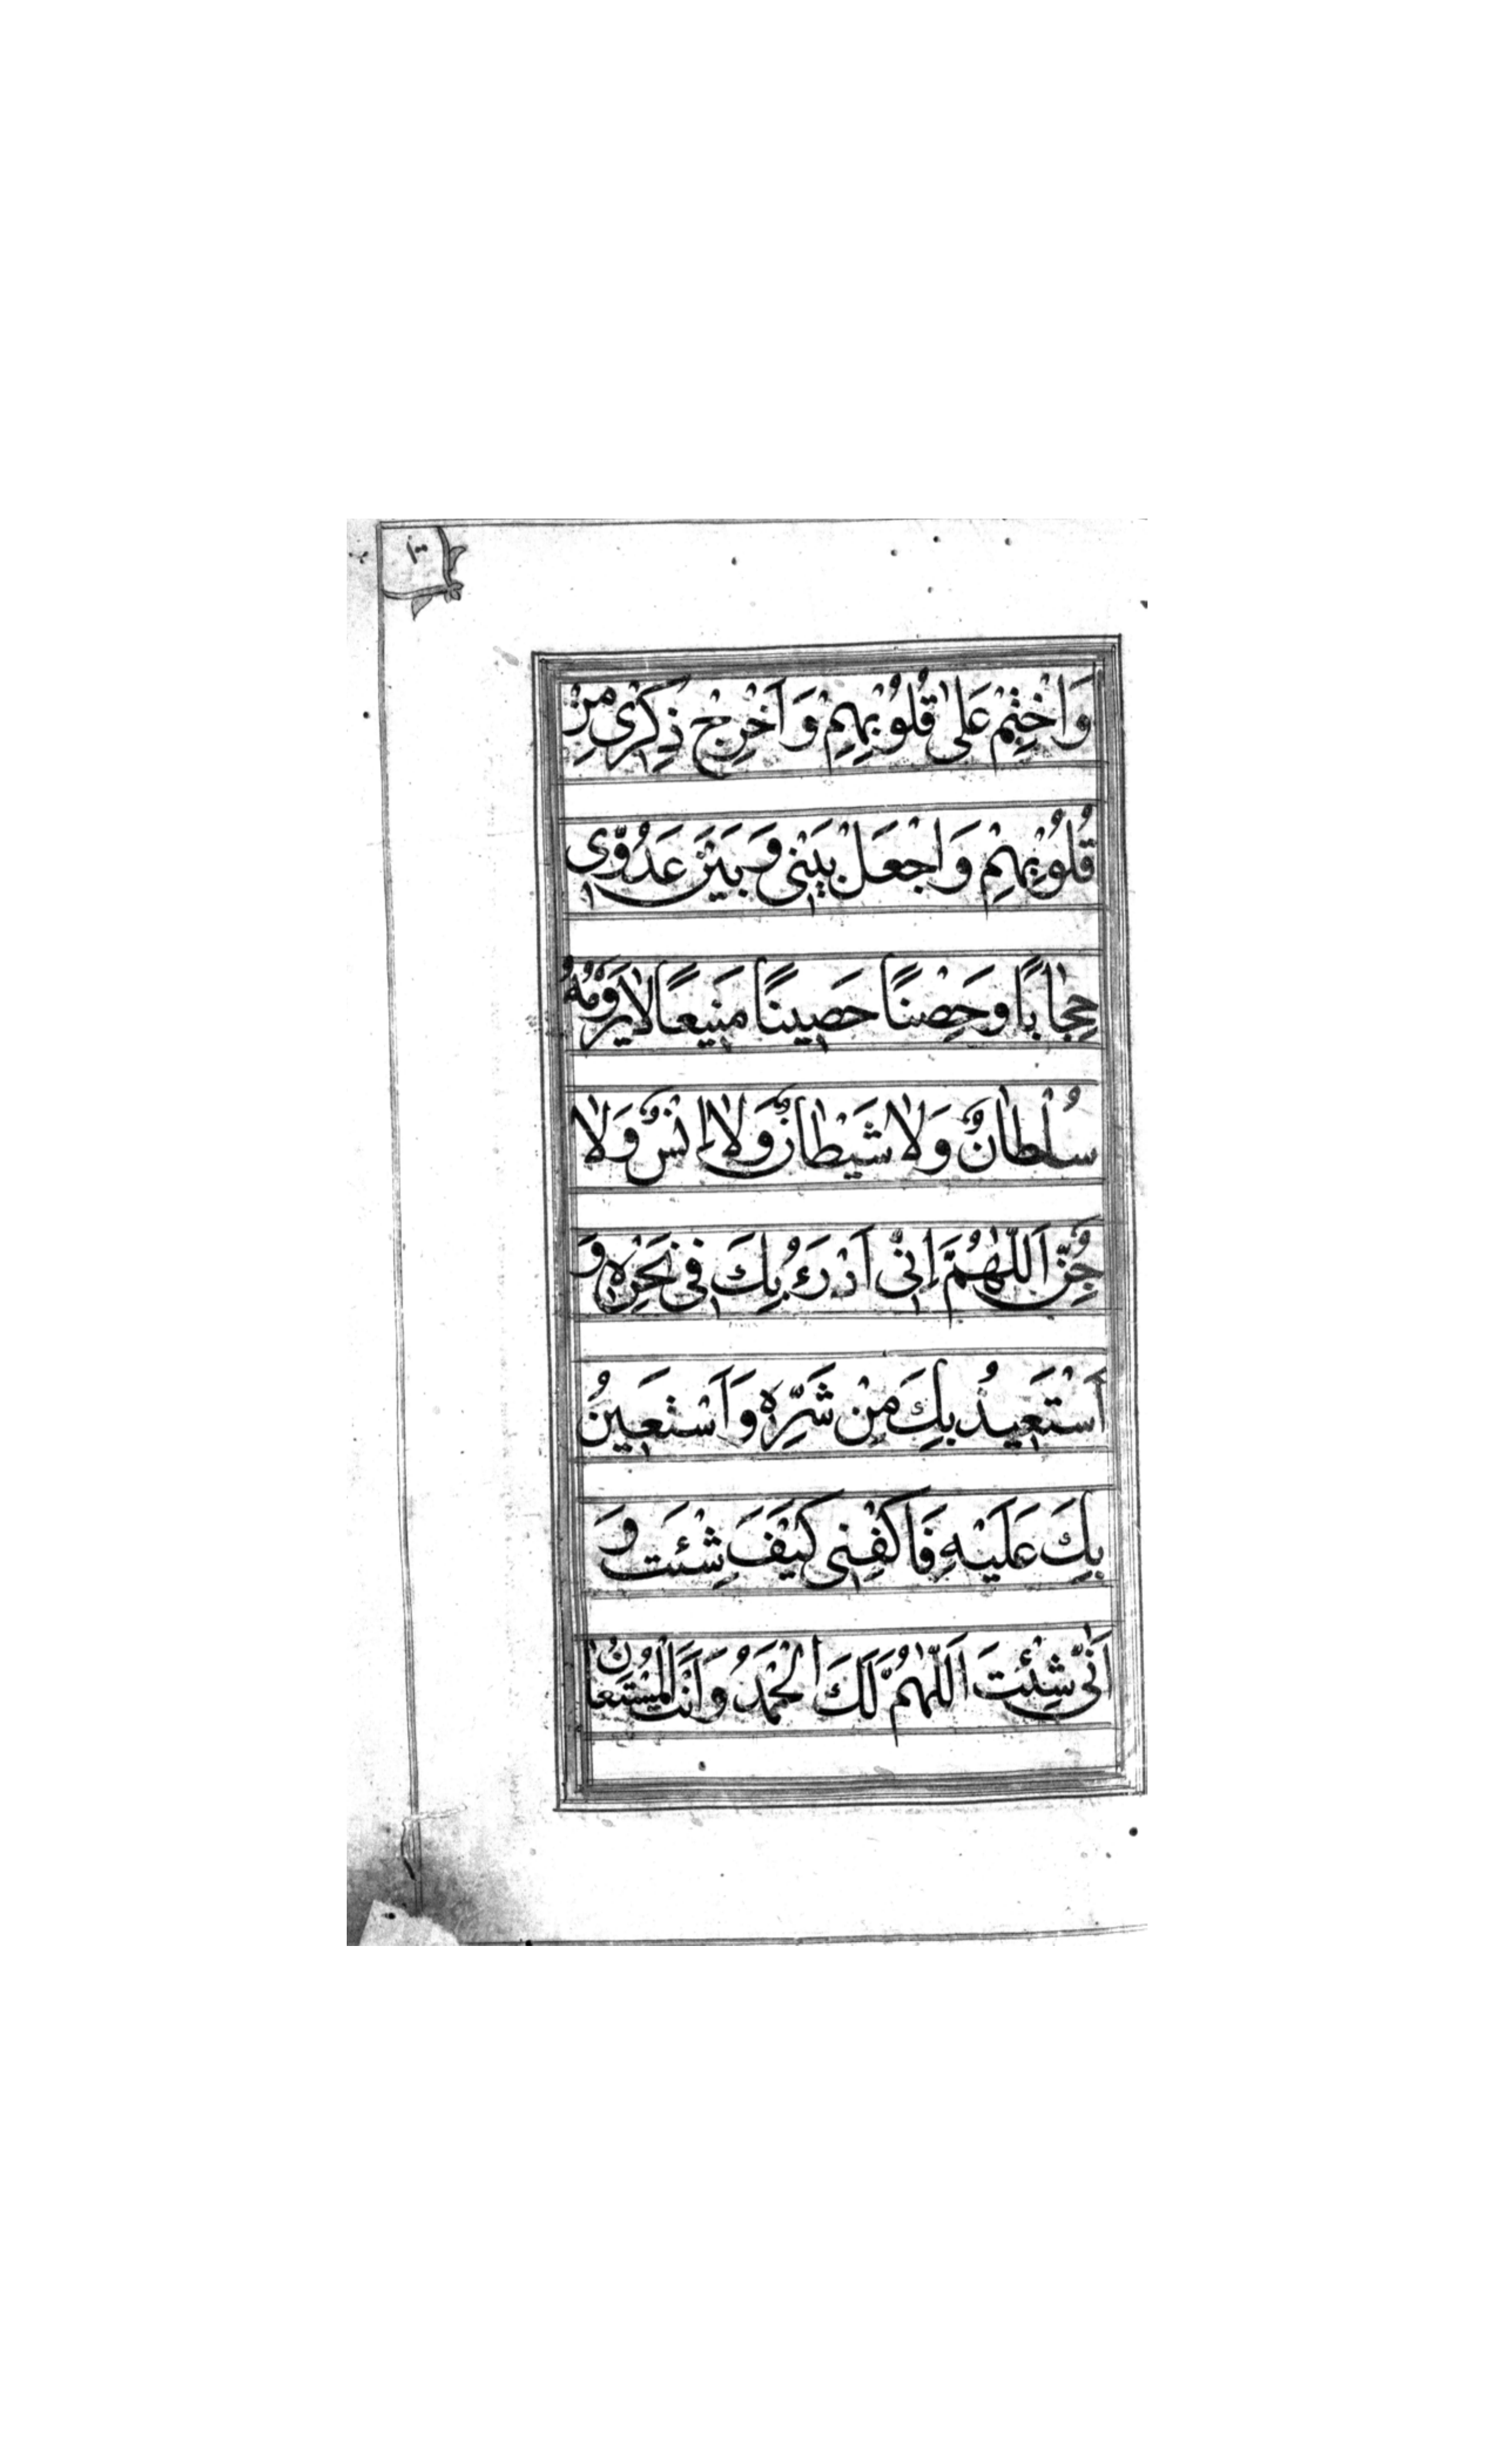 وَاخْتِمْ عَلٰى قُلُوْبِهِمْ وَاَخْرِجْ ذِكْرِىْ مِنْ
قُلُوْبِهِمْ وَاجْعَلْ بَيْنِىْ وَبَيْنَ عَدُوِّىْ
حِجَابًا وَحِصْنًا حَصِينًا مَنِيعًا لَا يَرُوْمُهُ
سُلْطَانٌ وَلَا شَيْطَانٌ وَلَا اِنْسٌ وَلَا
جِنٌّ اَللّٰهُمَّ اِنِّىْ اَدْرَءُ بِكَ فِىْ نَحْرِهٖ وَ
اَسْتَعِيذُ بِكَ مِنْ شَرِّهٖ وَاَسْتَعِينُ
بِكَ عَلَيْهِ فَاكْفِنِىْ كَيْفَ شِئْتَ وَ
اَنّٰى شِئْتَ اَللّٰهُمَّ لَكَ الْحَمْدُ وَاَنْتَ الْمُسْتَعَانُ